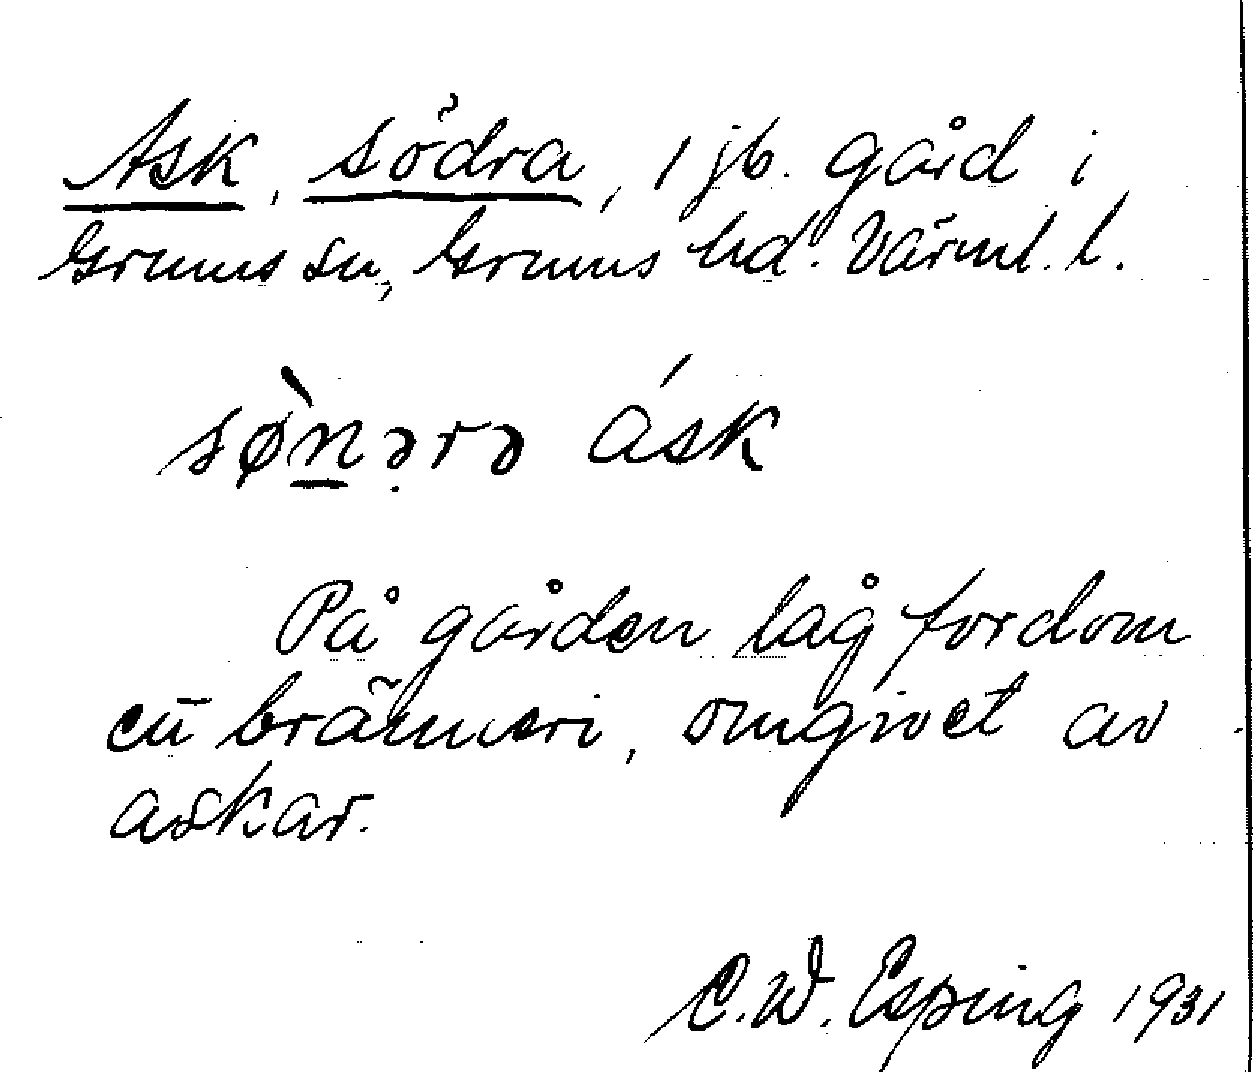 Ask, södra, 1 jb. gård i
Grums sn, Grums hd. Värml. l.
sø̀n̲ərə ásk
På gården låg fordom
ett bränneri, omgivet av
askar.
C.W. Esping 1931